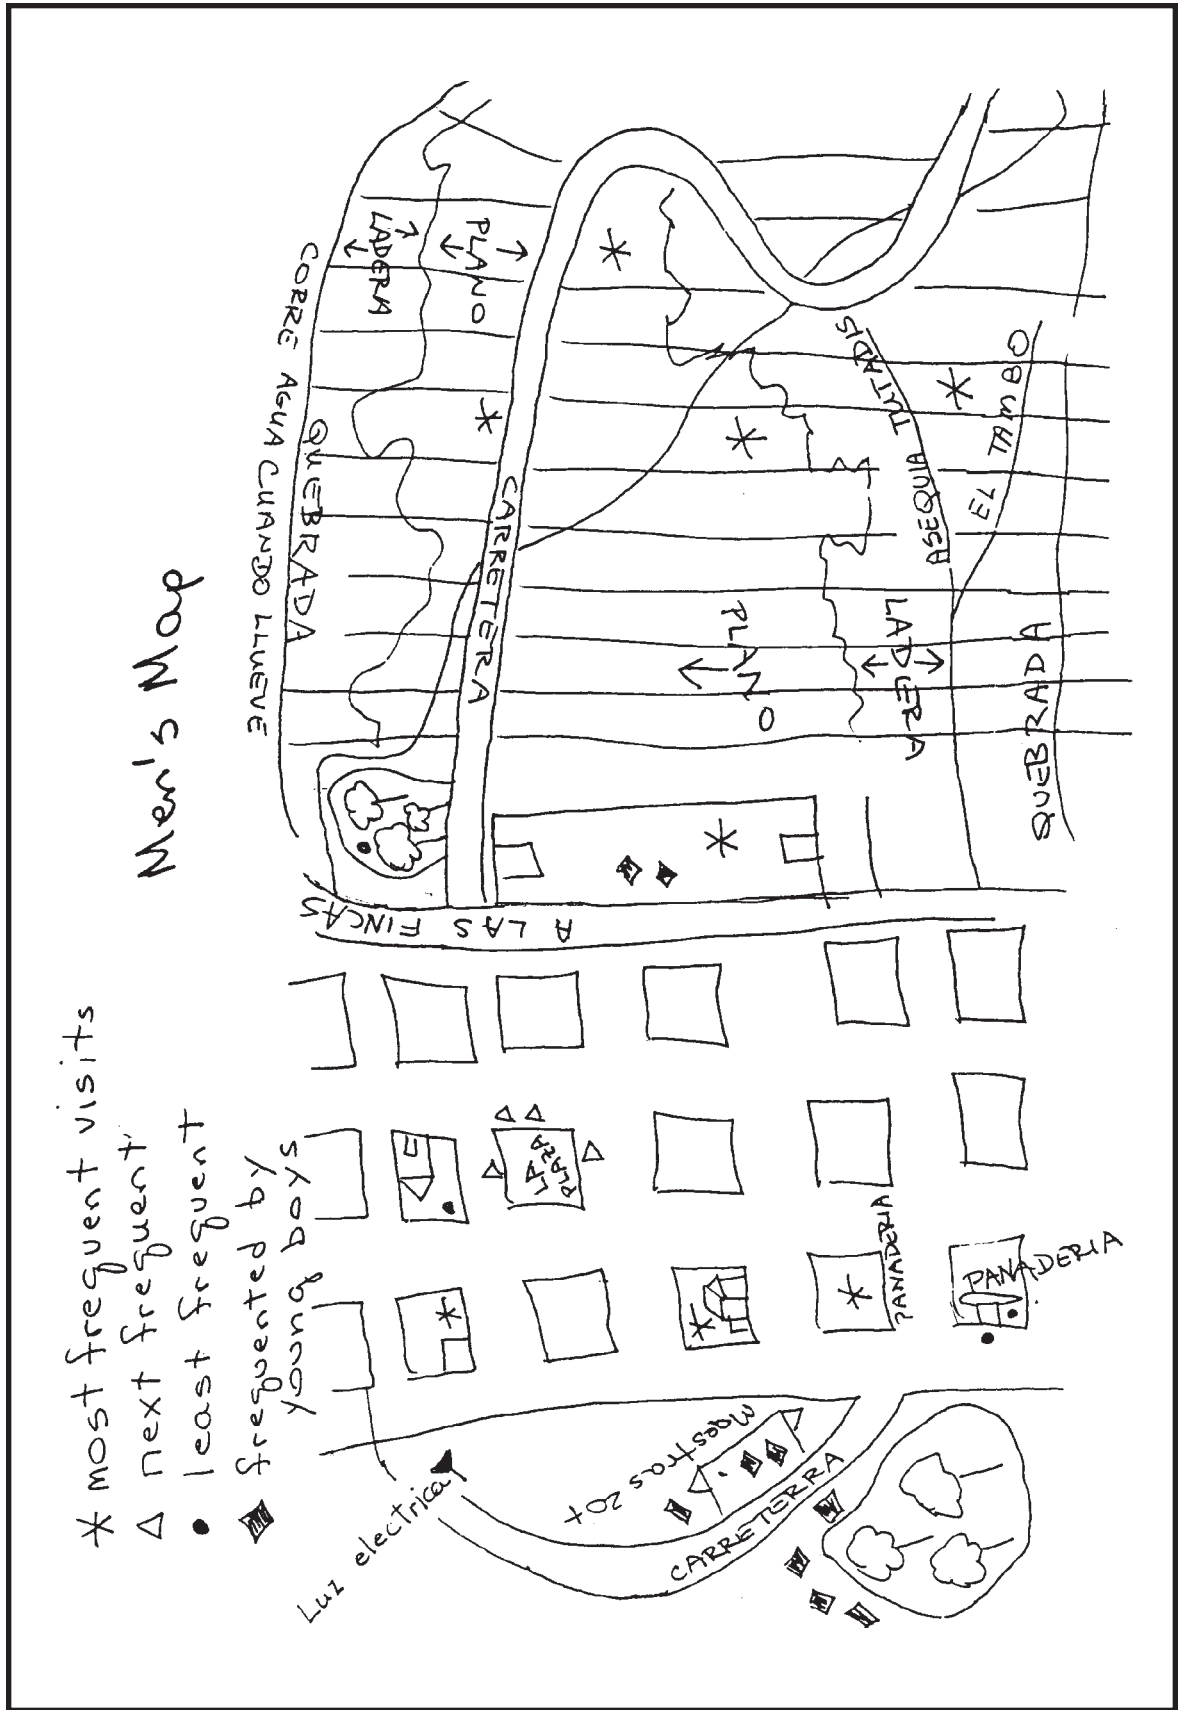 Men's Map
* most frequent visits
△ next frequent
● least frequent
frequented by
young boys
CORRE AGUA CUANDO LLUEVE
QUEBRADA
LADERA
PLANO
CARRETERA
ASEQUIA TUTADIS
EL TAMBO
QUEBRADA
PLANO
LADERA
A LAS FINCAS
LA
PLAZA
PANADERIA
PANADERIA
Luz electrica
maestras 20+
CARRETERRA